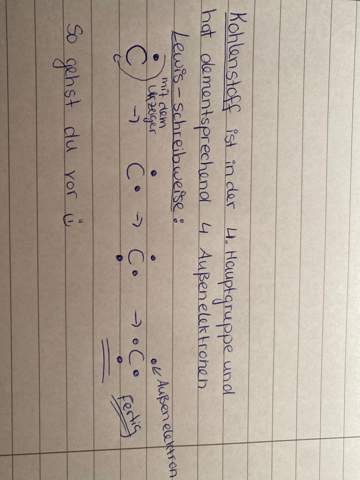 Kohlenstoff ist in der 4. Hauptgruppe und
hat dementsprechend 4 Außenelektronen
Lewis-schreibweise:
mit dem
Uhrzeiger
C → C → C → C
Außenelektron
fertig
So gehst du vor ü